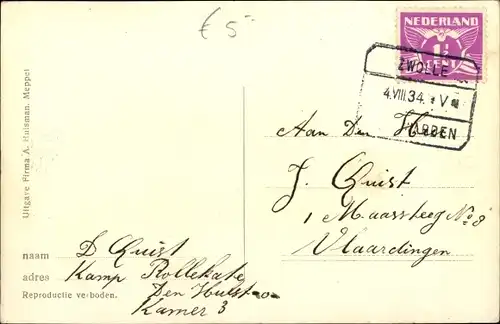 € 5-
NEDERLAND
1½
CENT
ZWOLLE
4.VIII.34. V
Aan Den Heer
J. Quist
1 Maassteeg No 8
Vlaardingen
Uitgave Firma A. Huisman. Meppel
naam D Quist
adres Kamp Rollekate
Den Hulst
Kamer 3
Reproductie verboden.